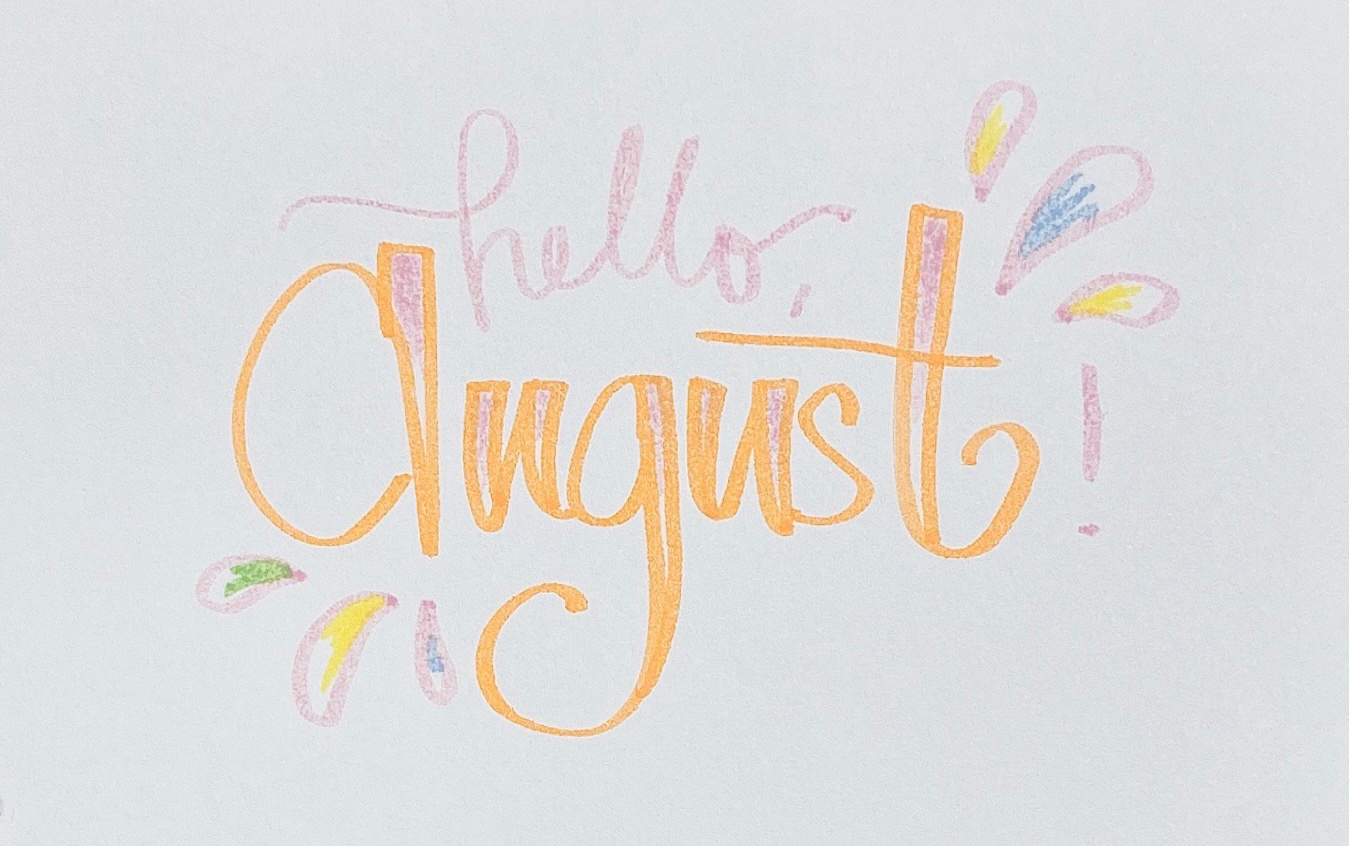 hello,
August!